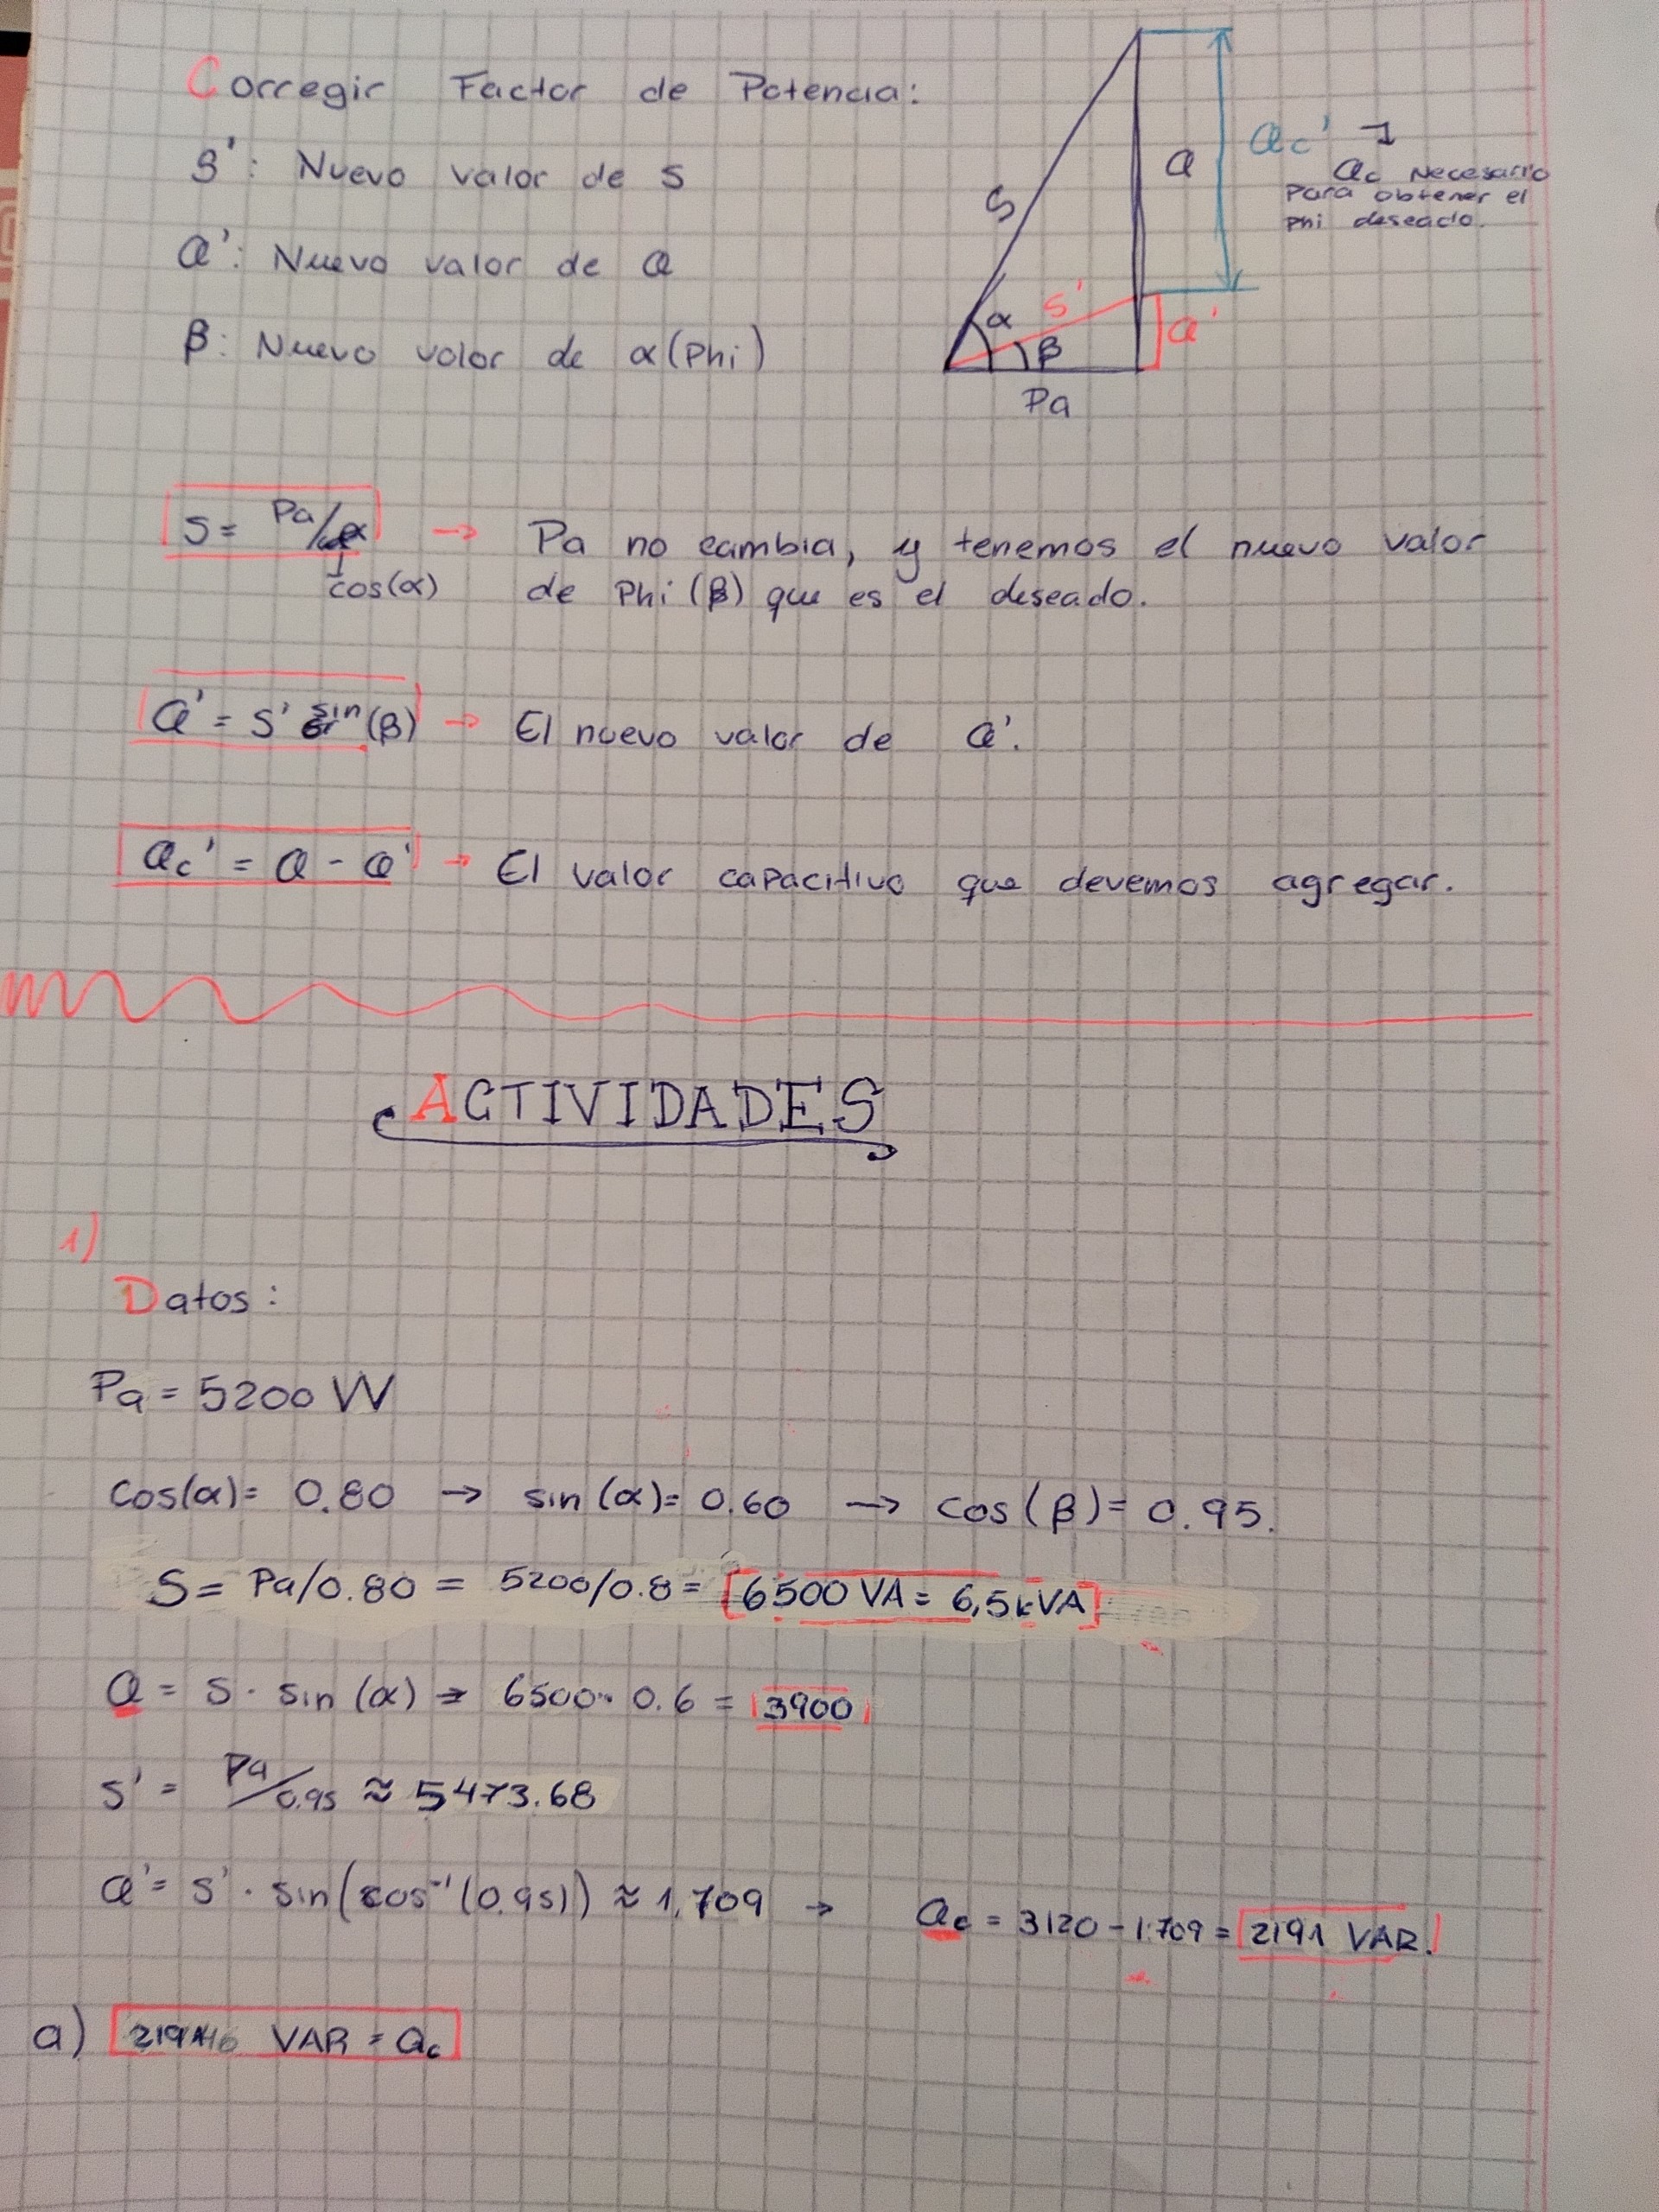 Corregir Factor de Potencia:
S': Nuevo valor de S
Q': Nuevo valor de Q
β: Nuevo valor de α(Phi)
S
Q
Qc'
Qc Necesario
Para obtener el
Phi deseado.
S'
α
β
Q'
Pa
S= Pa/ → Pa no cambia, y tenemos el nuevo valor
cos(α) de Phi (β) que es el deseado.
Q' = S' sin(β) → El nuevo valor de Q'.
Qc' = Q - Q' → El valor capacitivo que devemos agregar.
ACTIVIDADES
1)
Datos:
Pa = 5200 W
Cos(α)= 0.80 → sin(α)= 0.60 → cos(β)= 0.95.
S= Pa/0.80 = 5200/0.8= 6500 VA = 6,5kVA
Q = S · sin(α) = 6500· 0.6 = 3900
S' = Pa/0.95 ≈ 5473.68
Q'= S' · sin(cos⁻¹(0.95)) ≈ 1,709 → Qc = 3120 - 1.709 = 2191 VAR.
a) VAR = Qc